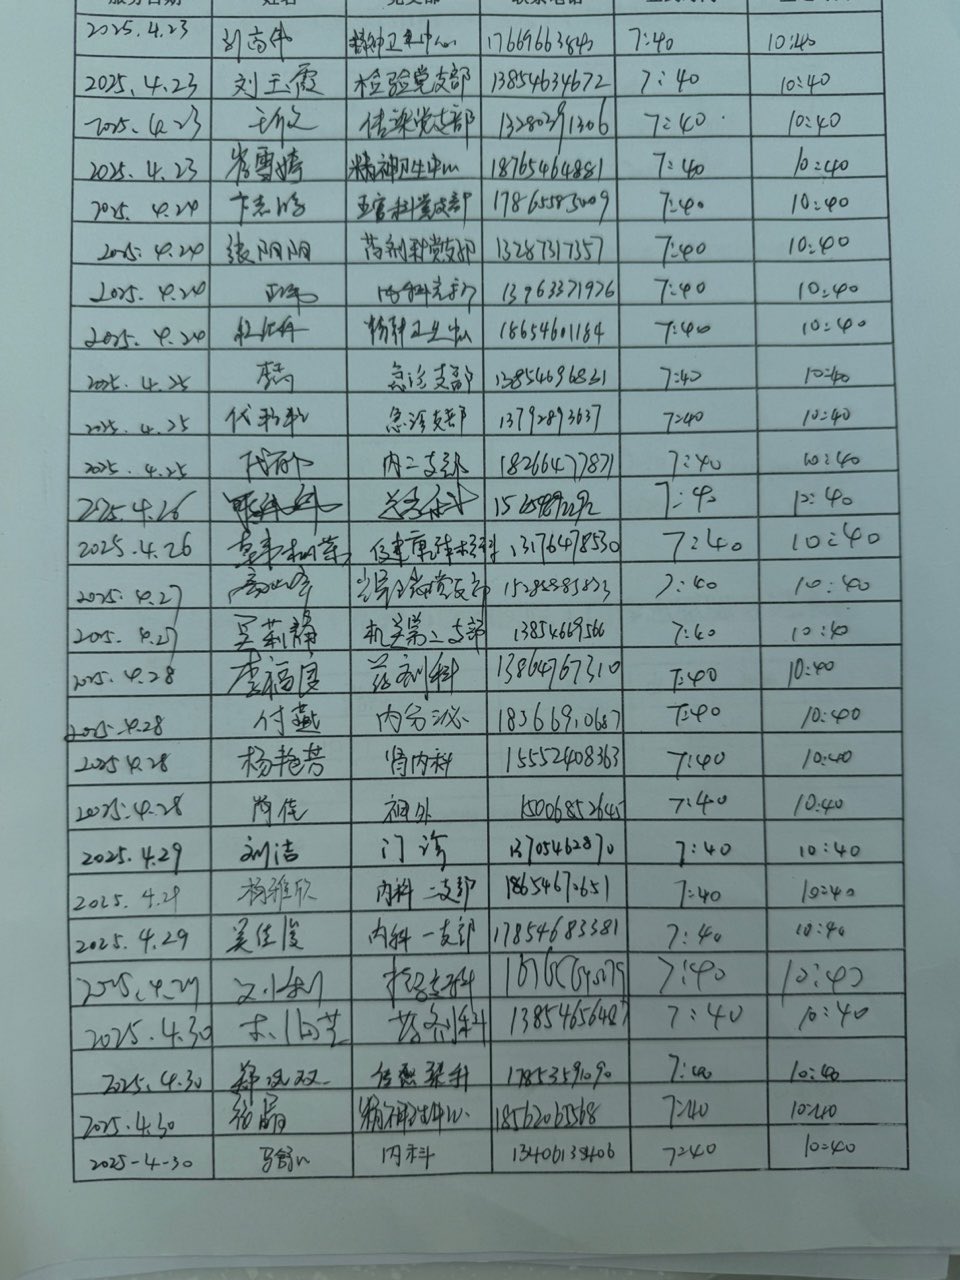 服务日期 姓名 党支部 联系电话
2025.4.23 刘高伟 精神卫生中心 17669663840 7:40 10:40
2025.4.23 刘玉霞 检验党支部 13854634672 7:40 10:40
2025.4.23 传染党支部 13280391306 7:40 10:40
2025.4.23 崔雪婷 精神卫生中心 18765464881 7:40 10:40
2025.4.24 五官科党支部 17865583009 7:40 10:40
2025.4.24 张阴阴 药剂科党支部 13287317357 7:40 10:40
2025.4.24 王伟 13963371976 7:40 10:40
2025.4.24 精神卫生中心 18654601184 7:40 10:40
2025.4.25 急诊支部 13854696831 7:40 10:40
2025.4.25 急诊支部 13792893637 7:40 10:40
2025.4.25 内二支部 18266477871 7:40 10:40
2025.4.26 7:40 10:40
2025.4.26 13176478530 7:40 10:40
2025.4.27 党支部 7:40 10:40
2025.4.27 吴莉静 机关第二支部 13854669566 7:40 10:40
2025.4.28 李福国 药剂科 13864767310 7:40 10:40
2025.4.28 付燕 内分泌 18366910687 7:40 10:40
2025.4.28 杨艳芳 肾内科 15552408363 7:40 10:40
2025.4.28 尚佳 神外 15006852645 7:40 10:40
2025.4.29 刘洁 门诊 13705462870 7:40 10:40
2025.4.29 杨雅欣 内科二支部 18654670651 7:40 10:40
2025.4.29 吴佳俊 内科一支部 17854683381 7:40 10:40
2025.4.29 7:40 10:40
2025.4.30 药剂科 13854656487 7:40 10:40
2025.4.30 郑汉双 传染科 17853591090 7:40 10:40
2025.4.30 张娟 精神卫生中心 18562065568 7:40 10:40
2025-4-30 内科 13406138406 7:40 10:40